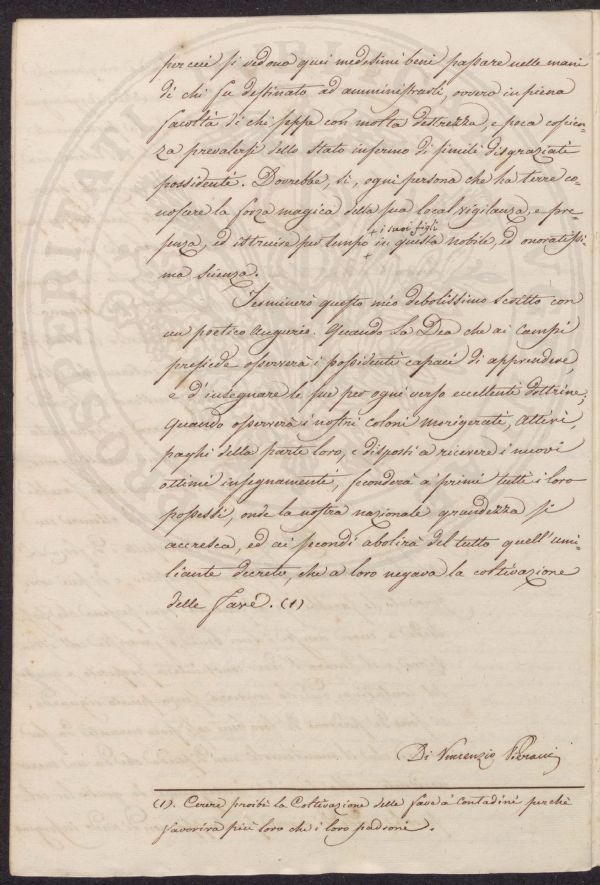 perciò si vedono quei medesimi beni passare nelle mani
di chi fu destinato ad amministrarli, ovvero in piena
facoltà di chi seppe con molta destrezza, e poca coscien-
za prevalersi dello stato infermo di simili disgraziati
possidenti. Dovrebbe, sì, ogni persona che ha terre co-
noscere la forza magica della sua local vigilanza, e pre-
+ i suoi figli
senza, ed istruire per tempo + in questa nobile, ed onoratissi-
ma scienza.
Terminerò questo mio debolissimo scritto con
un poetico Augurio. Quando la Dea che ai campi
presiede osserverà i possidenti capaci di apprendere,
e d'insegnare le sue per ogni verso eccellenti dottrine,
quando osserverà i nostri coloni morigerati, attivi,
paghi della parte loro, e disposti a ricevere i nuovi
ottimi insegnamenti, seconderà a' primi tutti i loro
possessi, onde la nostra nazionale grandezza si
accresca, ed ai secondi abolirà del tutto quell'umi-
liante decreto, che a loro negava la coltivazione
delle Fave. (1)
Di Vincenzio
(1). Cerere proibì la Coltivazione delle fave a' Contadini perchè
favoriva più loro che i loro padroni.
PROSPERITATI